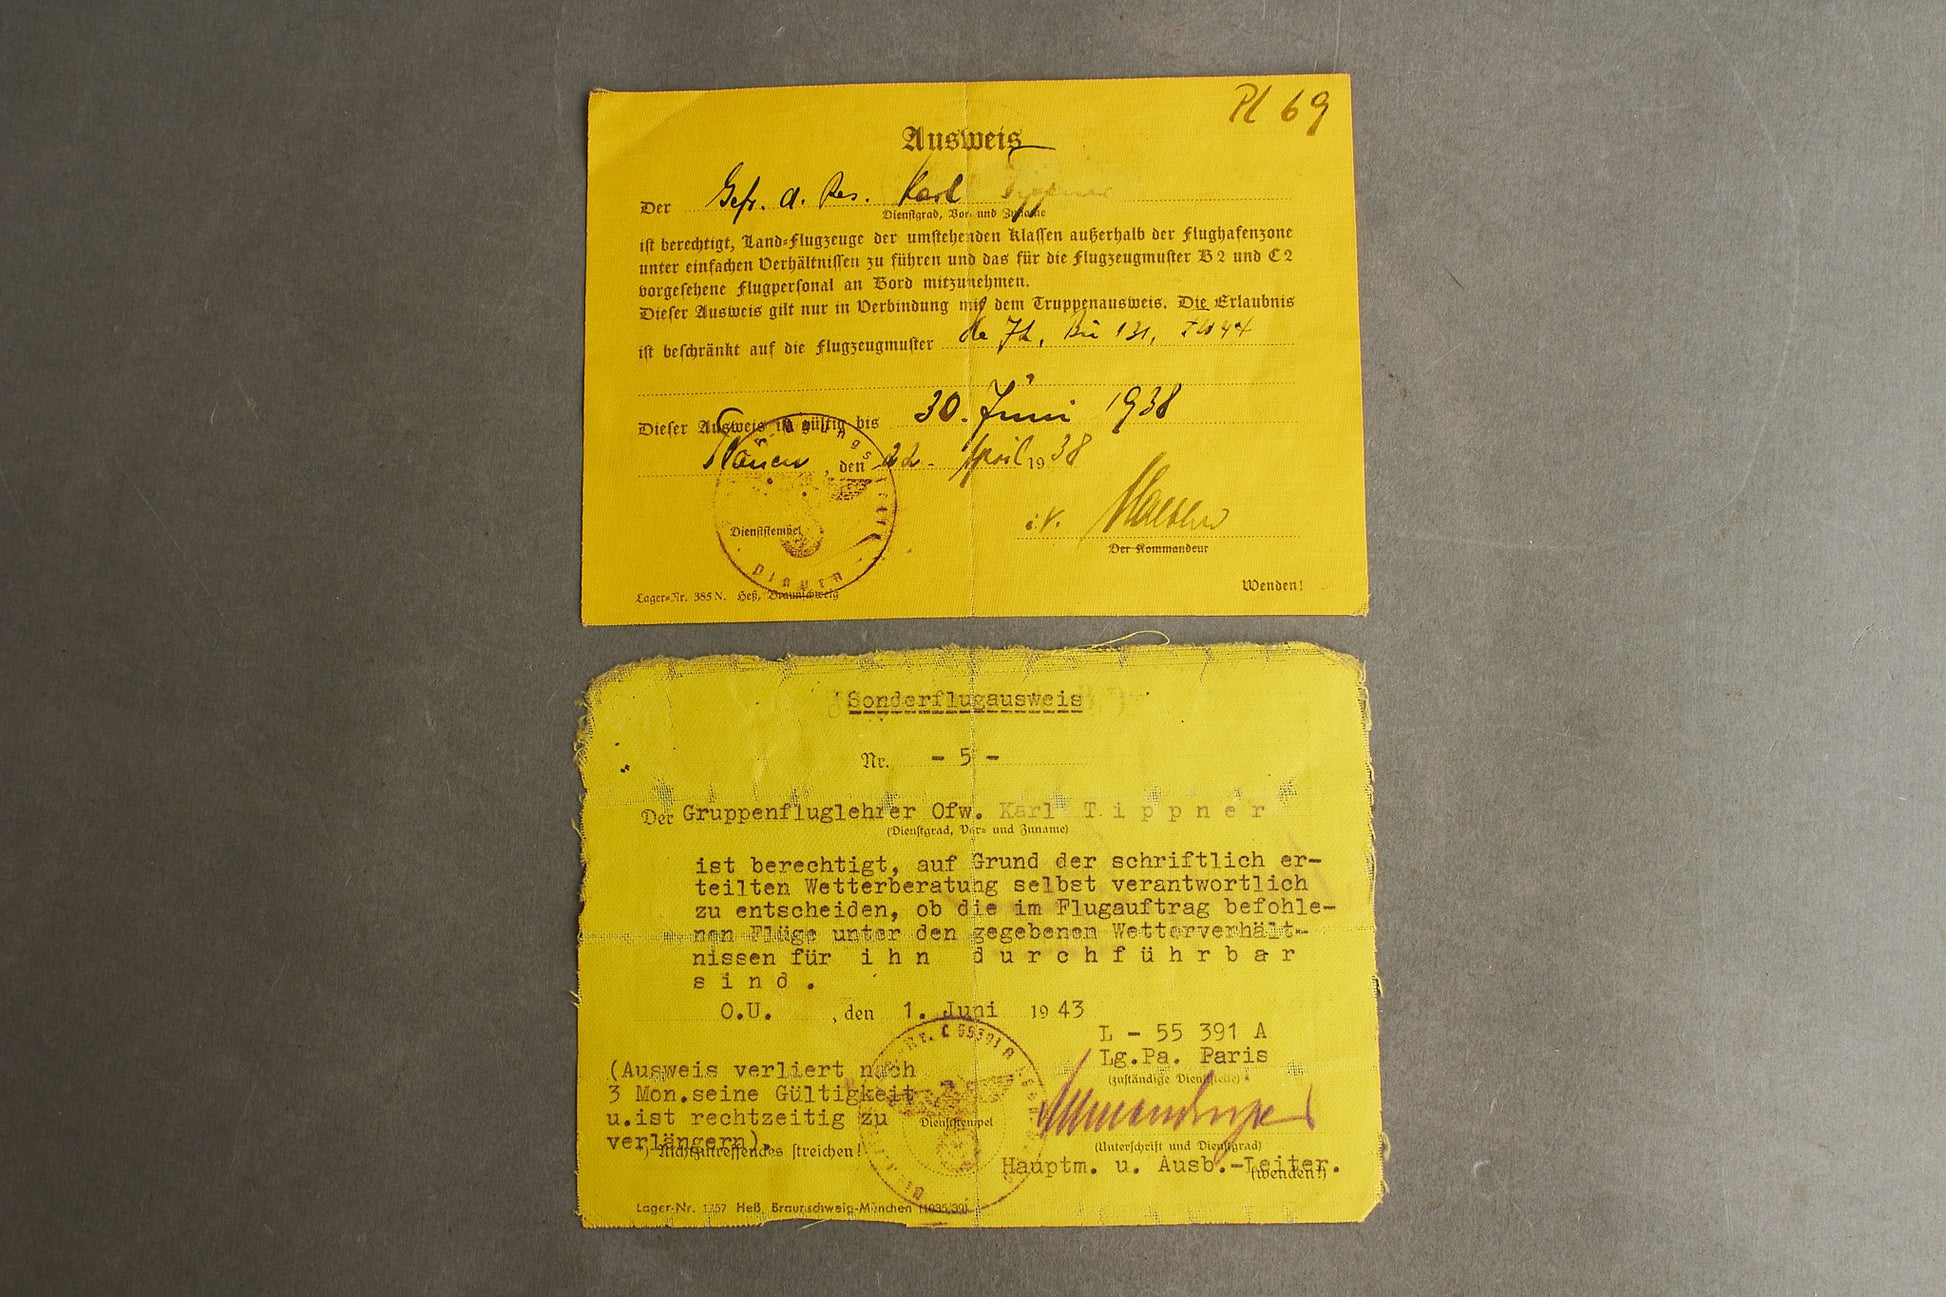 Pl 69
Ausweis
Der Gefr. d. Res. Karl Tippner
Dienstgrad, Vor- und Zuname
ist berechtigt, Land-Flugzeuge der umstehenden Klassen außerhalb der Flughafenzone
unter einfachen Verhältnissen zu führen und das für die Flugzeugmuster B 2 und C 2
vorgesehene Flugpersonal an Bord mitzunehmen.
Dieser Ausweis gilt nur in Verbindung mit dem Truppenausweis. Die Erlaubnis
ist beschränkt auf die Flugzeugmuster He 72, Bü 131, FW 44
Dieser Ausweis ist gültig bis 30. Juni 1938
Plauen, den 22. April 1938
Dienststempel
Plauen
i.V.
Der Kommandeur
Wenden!
Lager-Nr. 385 N. Heß, Braunschweig
Sonderflugausweis
Nr. - 5 -
Der Gruppenfluglehrer Ofw. Karl Tippner
(Dienstgrad, Vor- und Zuname)
ist berechtigt, auf Grund der schriftlich er-
teilten Wetterberatung selbst verantwortlich
zu entscheiden, ob die im Flugauftrag befohle-
nen Flüge unter den gegebenen Wetterverhält-
nissen für ihn durchführbar
sind.
O.U. , den 1. Juni 1943
L - 55 391 A
Lg.Pa. Paris
(zuständige Dienststelle)
(Ausweis verliert nach
3 Mon.seine Gültigkeit
u.ist rechtzeitig zu
verlängern).
*) Nichtzutreffendes streichen!
Nr. L 55391 A
Dienststempel
(Unterschrift und Dienstgrad)
Hauptm. u. Ausb.-Leiter.
(wenden!)
Lager-Nr. 1357 Heß, Braunschweig-München (1035/39)